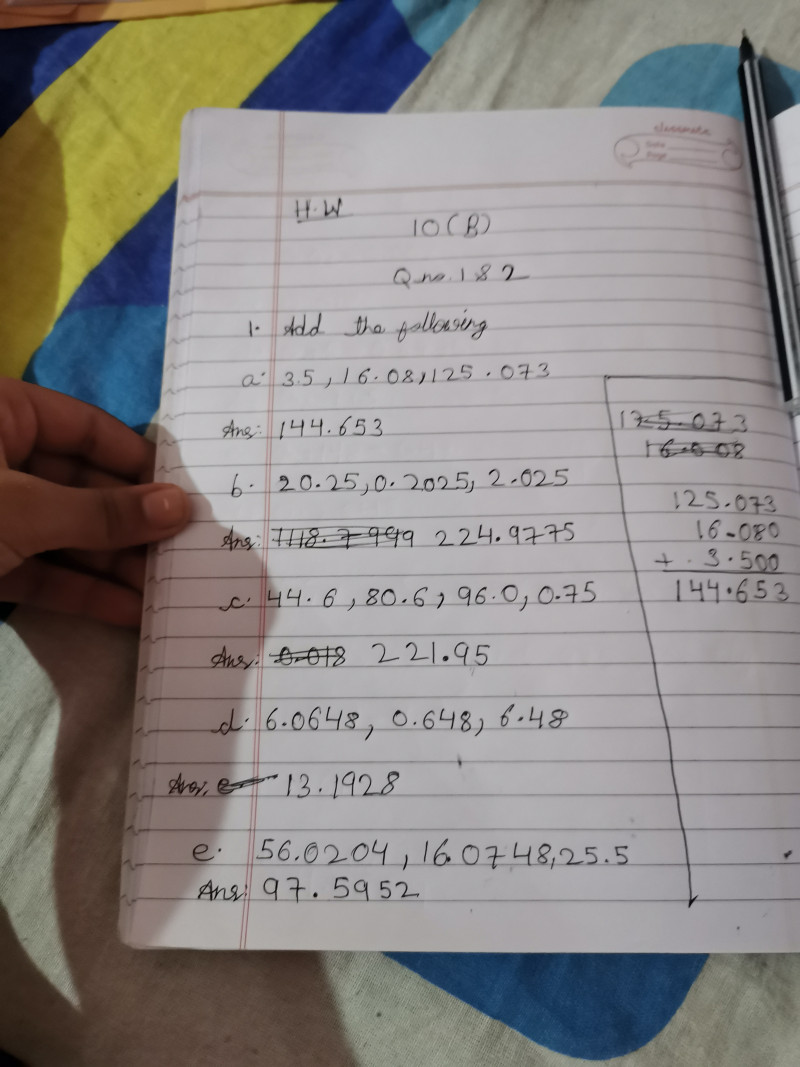 classmate
Date
Page
H.W
10(B)
Q.no.1 & 2
1. Add the following
a. 3.5, 16.08, 125.073
Ans: 144.653
b. 20.25, 0.2025, 2.025
Ans: 7118.7999 224.9775
c. 44.6, 80.6, 96.0, 0.75
Ans: 0.018 221.95
d. 6.0648, 0.648, 6.48
Ans: 13.1928
e. 56.0204, 16.0748, 25.5
Ans: 97.5952
175.073
16.008
125.073
16.080
+ 3.500
144.653